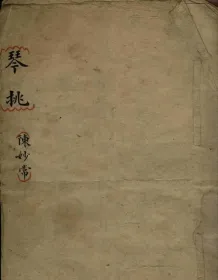 琴挑
陳妙常